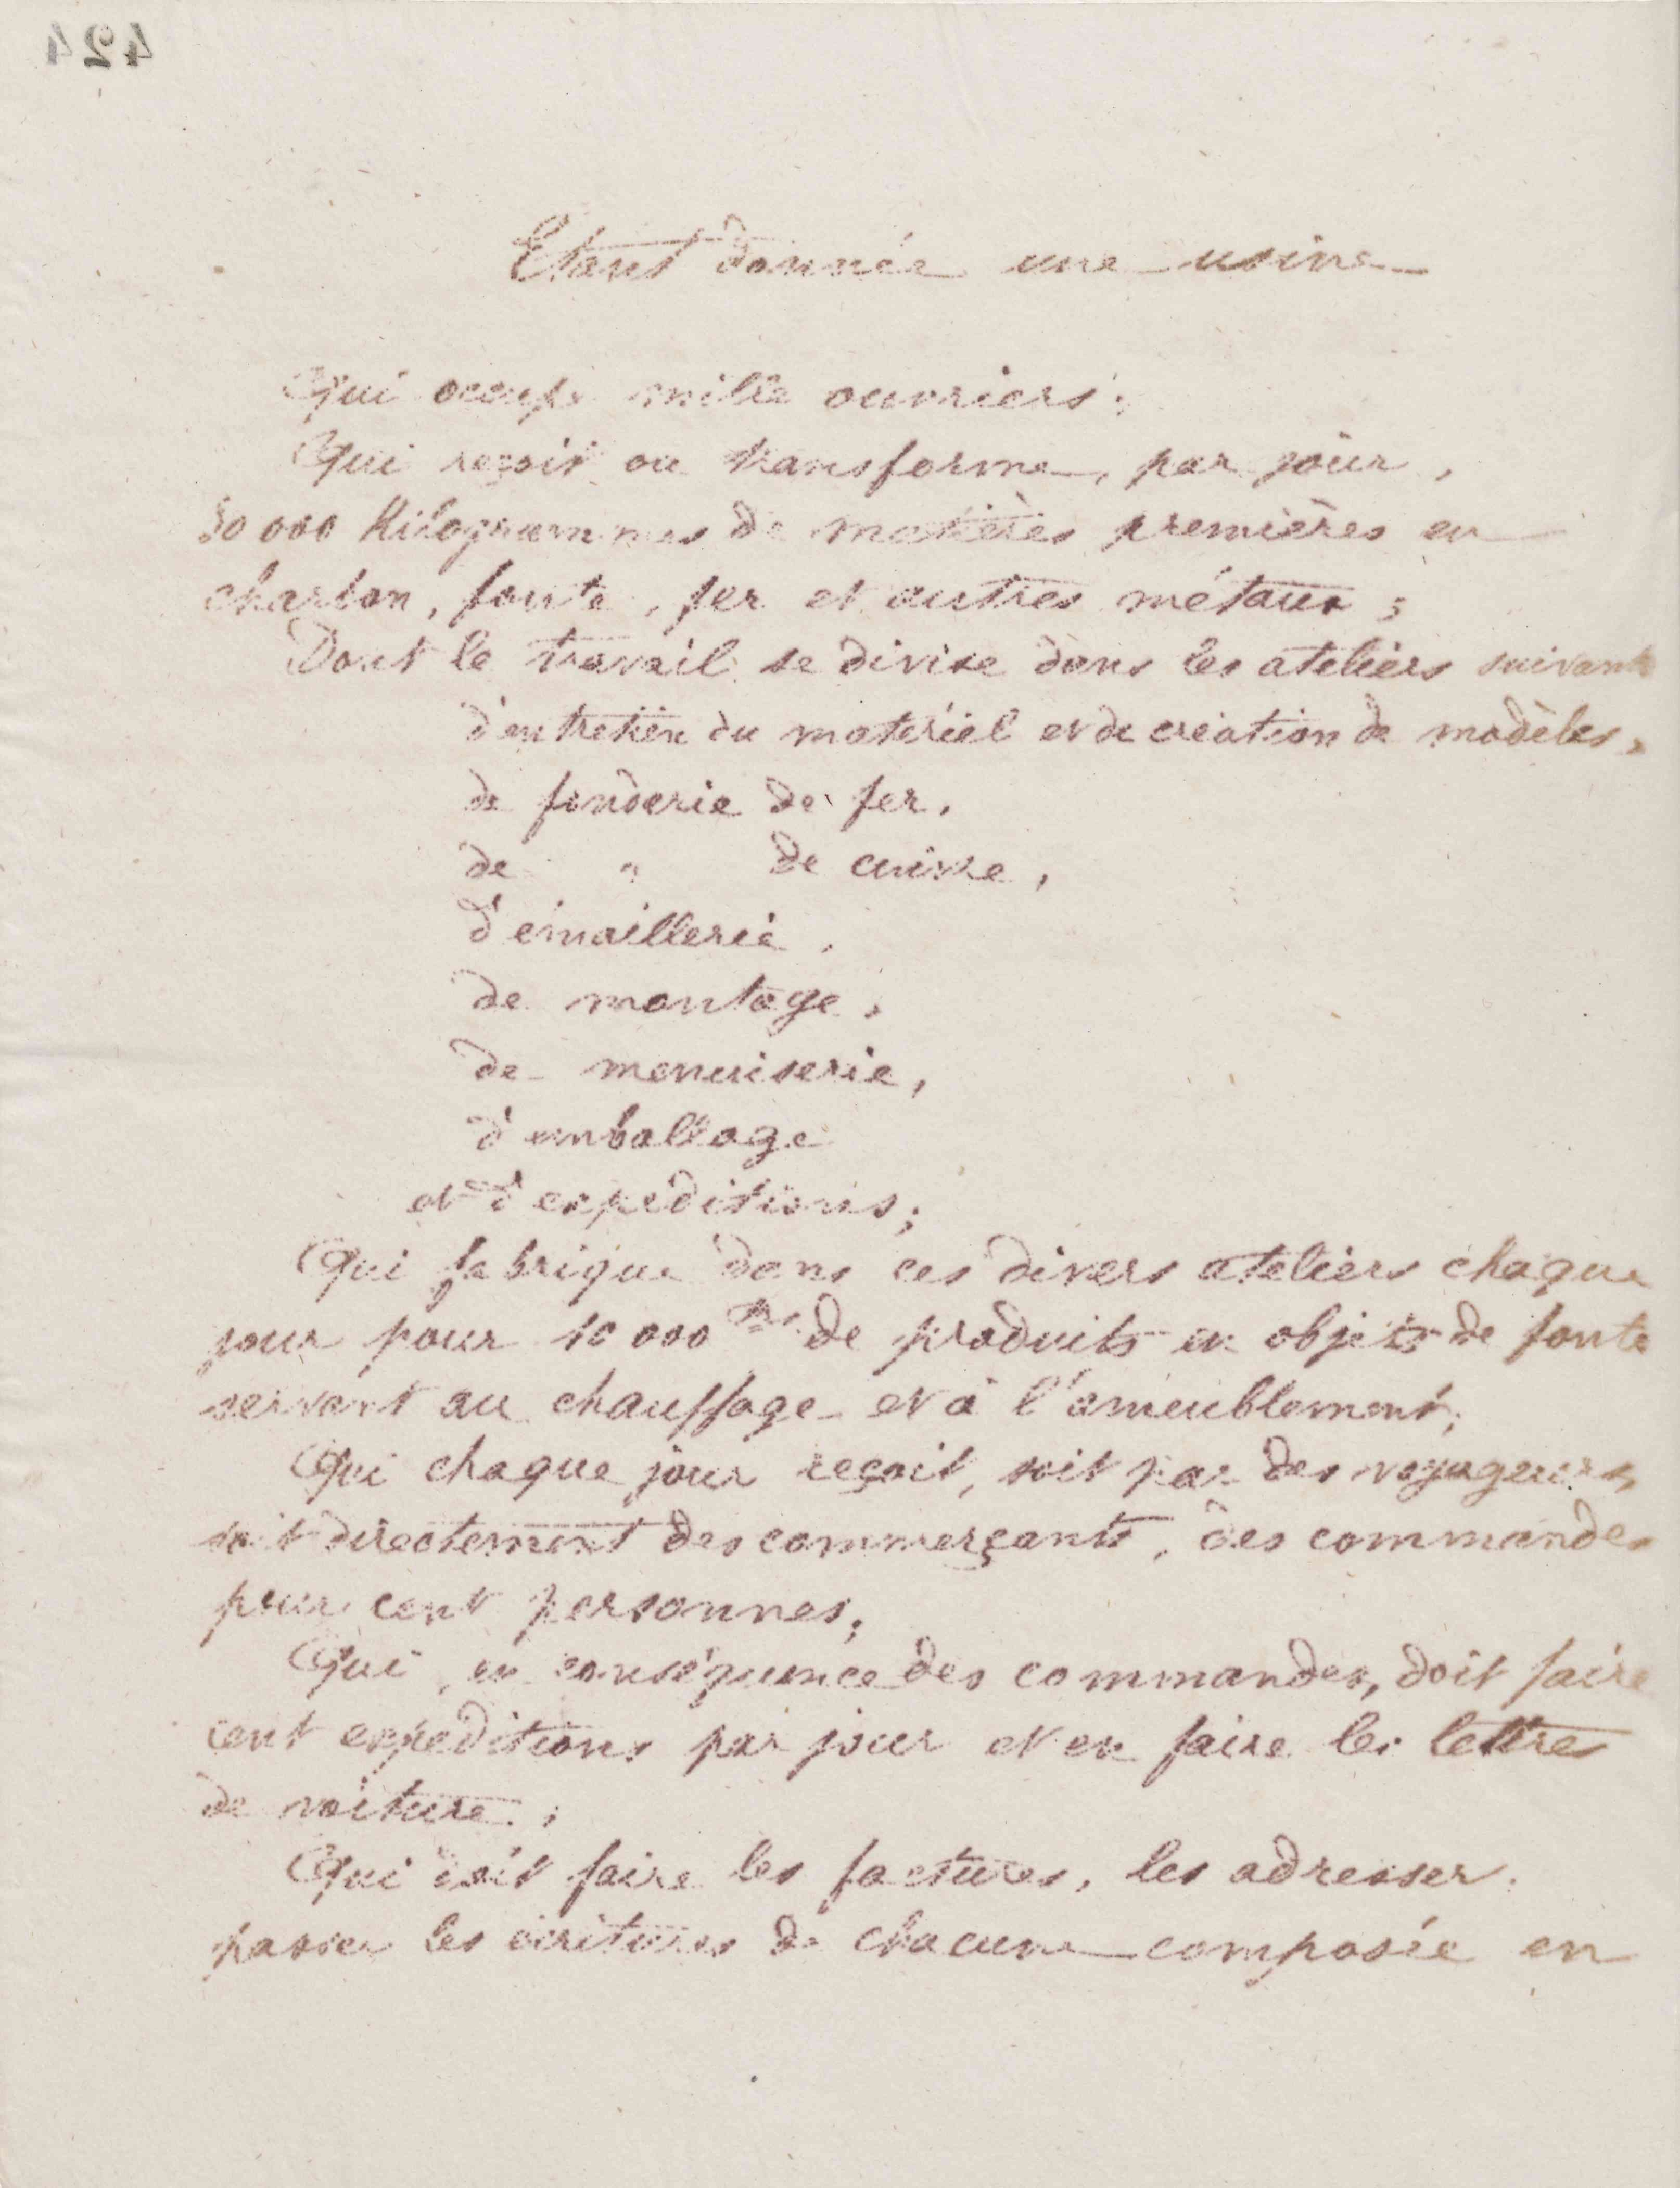 424
Etant donnée une usine
Qui occupe mille ouvriers;
Qui reçoit ou transforme, par jour,
50 000 Kilogrammes de matières premières en
charbon, fonte, fer et autres métaux;
Dont le travail se divise dans les ateliers suivants
d'entretien du matériel et de création de modèles,
de fonderie de fer,
de " de cuivre,
d'émaillerie,
de montage,
de menuiserie,
d'emballage
et d'expéditions;
Qui fabrique dans ces divers ateliers chaque
jour pour 10 000 de produits en objets de fonte
servant au chauffage et à l'ameublement;
Qui chaque jour reçoit, soit par des voyageurs,
soit directement des commerçants, des commandes
pour cent personnes;
Qui, en conséquence des commandes, doit faire
cent expéditions par jour et en faire les lettres
de voiture;
Qui doit faire les factures, les adresser,
passer les écritures de chacune composée en